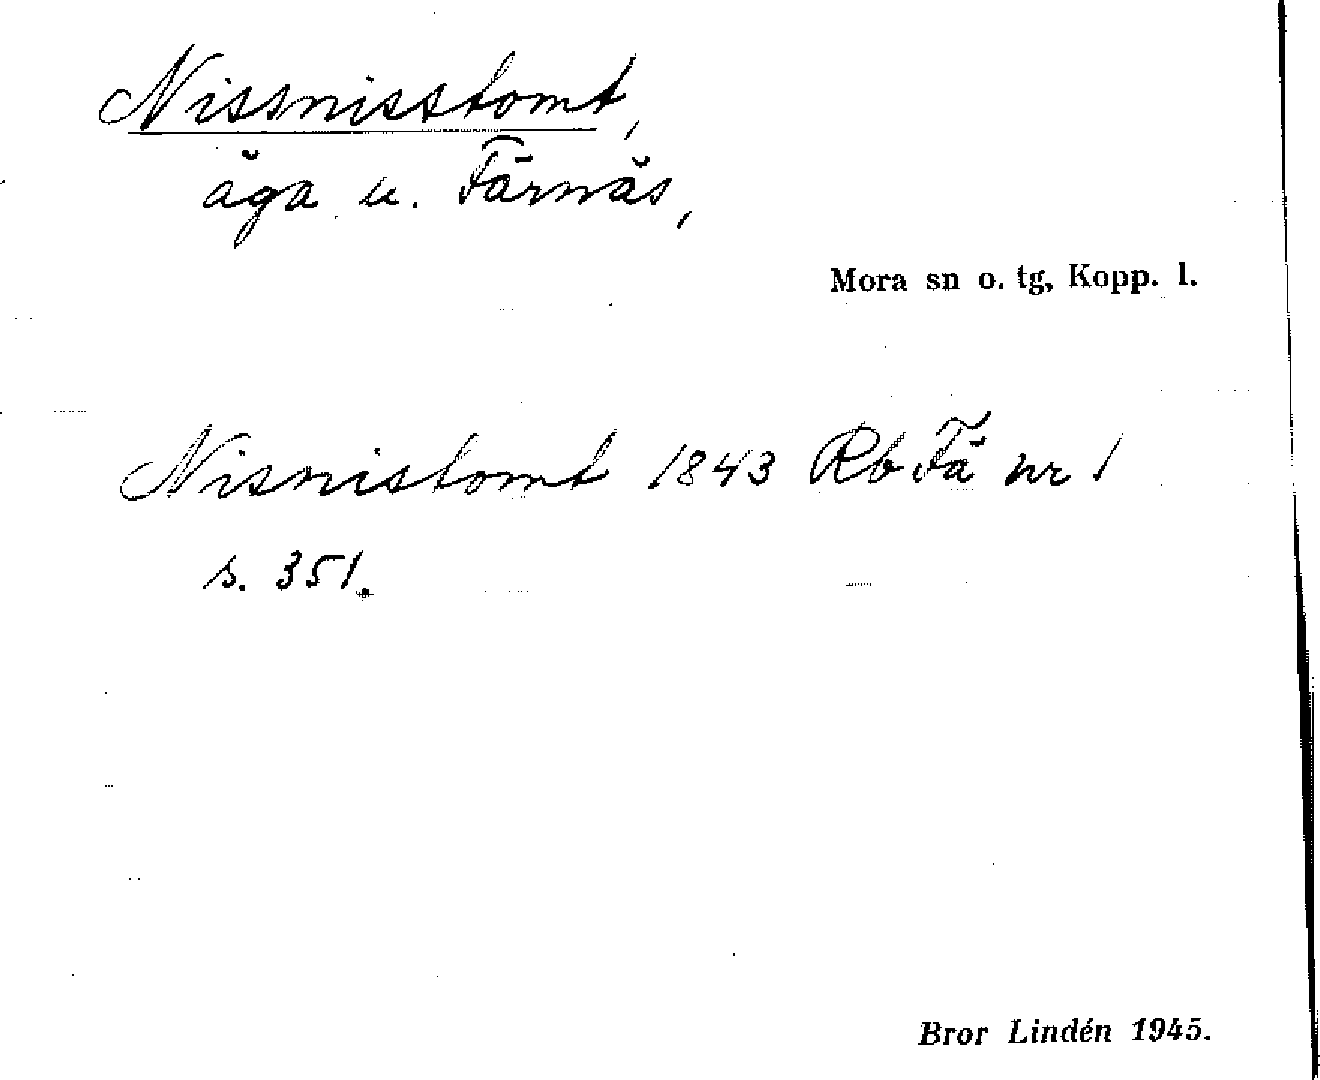 Nissnisstomt,
äga u. Färnäs,
Mora sn o. tg, Kopp. l.
Nisnistomt 1843 Rb Fä nr 1
s. 351.
Bror Lindén 1945.